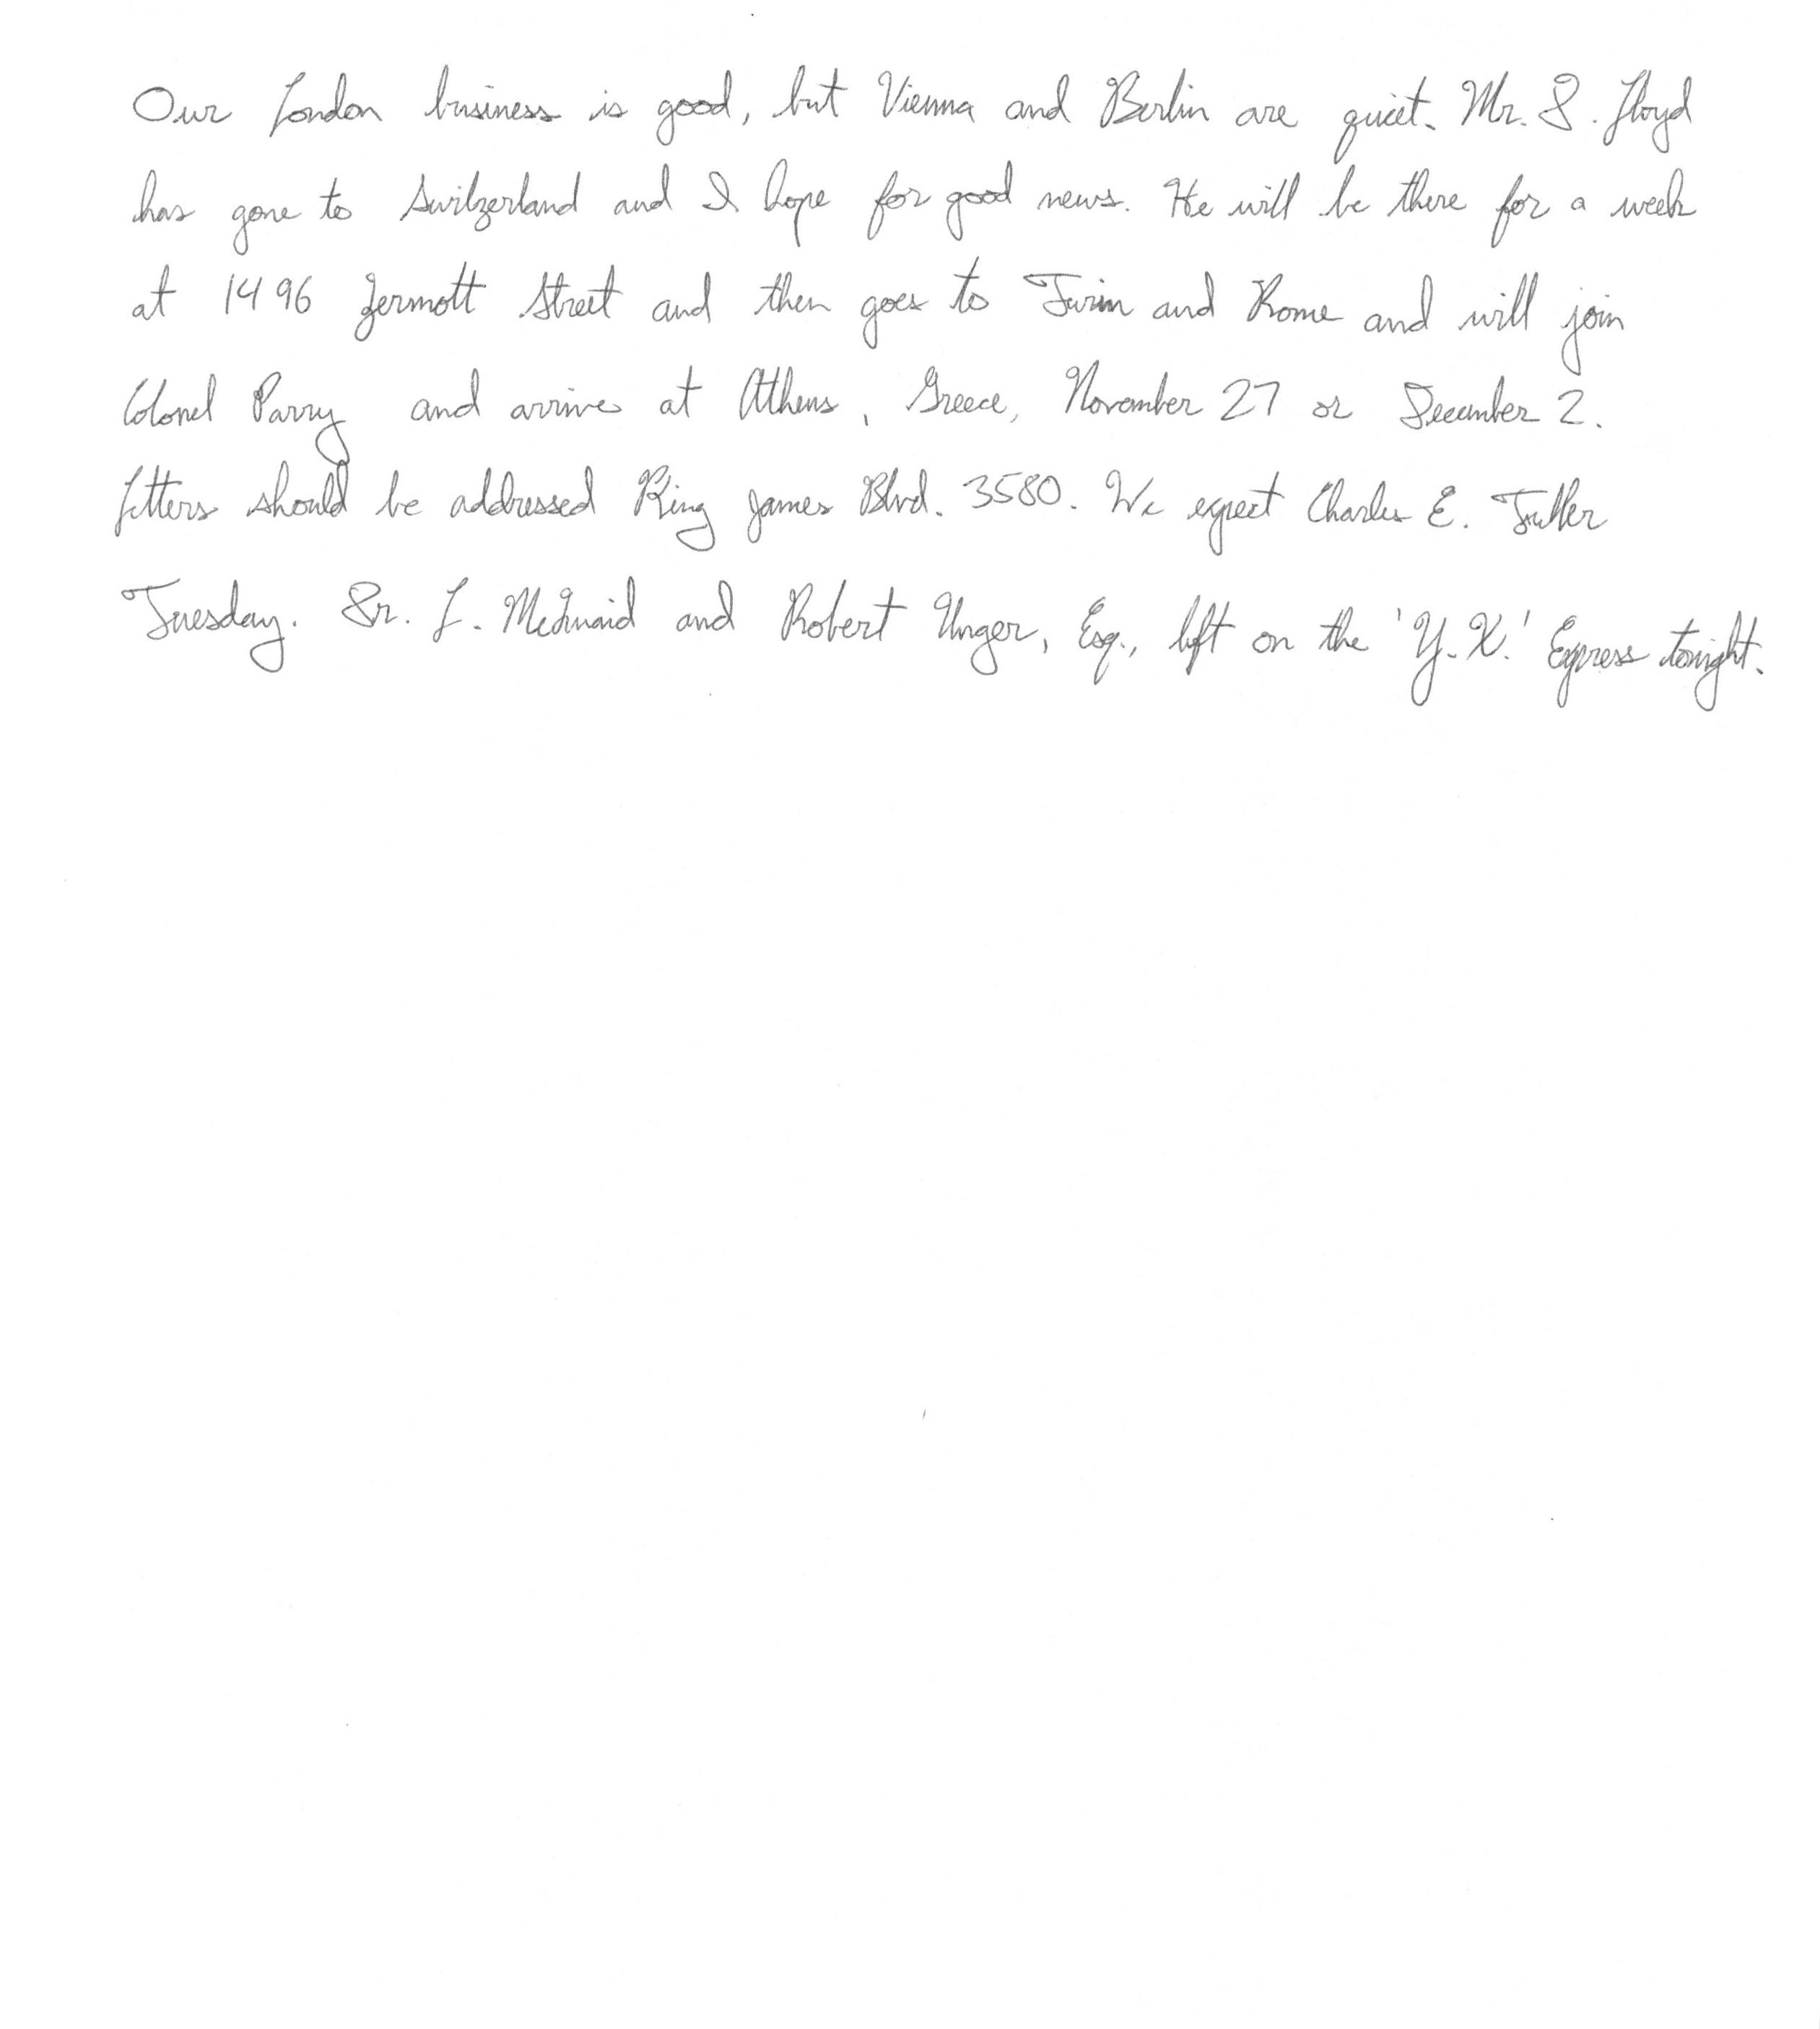 Our London business is good, but Vienna and Berlin are quiet. Mr. D. Lloyd
has gone to Switzerland and I hope for good news. He will be there for a week
at 1496 Zermott Street and then goes to Turin and Rome and will join
Colonel Parry and arrive at Athens, Greece, November 27 or December 2.
Letters should be addressed King James Blvd. 3580. We expect Charles E. Fuller
Tuesday. Dr. L. McQuaid and Robert Unger, Esq., left on the 'Y.X.' Express tonight.